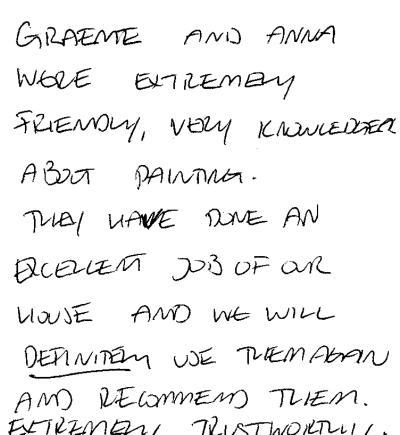 GRAEME AND ANNA
WERE EXTREMELY
FRIENDLY, VERY KNOWLEDGER
ABOUT PAINTING.
THEY HAVE DONE AN
EXCELLENT JOB OF OUR
HOUSE AND WE WILL
DEFINITELY USE THEM AGAIN
AND RECOMMEND THEM.
EXTREMELY TRUSTWORTHY.